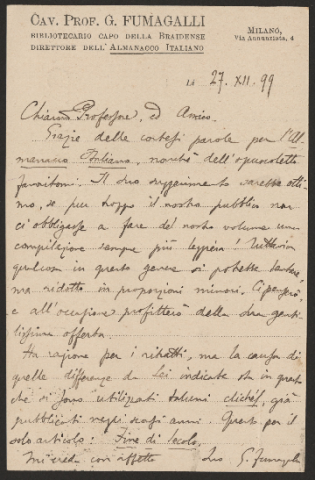 CAV. PROF. G. FUMAGALLI
BIBLIOTECARIO CAPO DELLA BRAIDENSE
DIRETTORE DELL'ALMANACCO ITALIANO
MILANO,
Via Annunciata, 4
LI 27. XII. 99
Chiarmo Professore, ed Amico.
Grazie delle cortesi parole per l'Al-
manacco Italiano, nonchè dell'opuscoletto
favoritomi. Il suo suggerimento sarebbe otti-
mo, se pur troppo il nostro pubblico non
ci obbligasse a fare del nostro volume una
compilazione sempre più leggera! Tuttavia
qualcosa in questo genere si potrebbe tentare,
ma ridotto in proporzioni minori. Ci penserò,
e all'occasione profitterò della sua genti-
lissima offerta.
Ha ragione per i ritratti, ma la causa di
quelle differenze da Lei indicate sta in questo
che si sono utilizzati taluni clichés, già
pubblicati negli scorsi anni. Questo per il
solo articolo: Fine di secolo.
Mi creda con affetto Suo G. Fumagalli